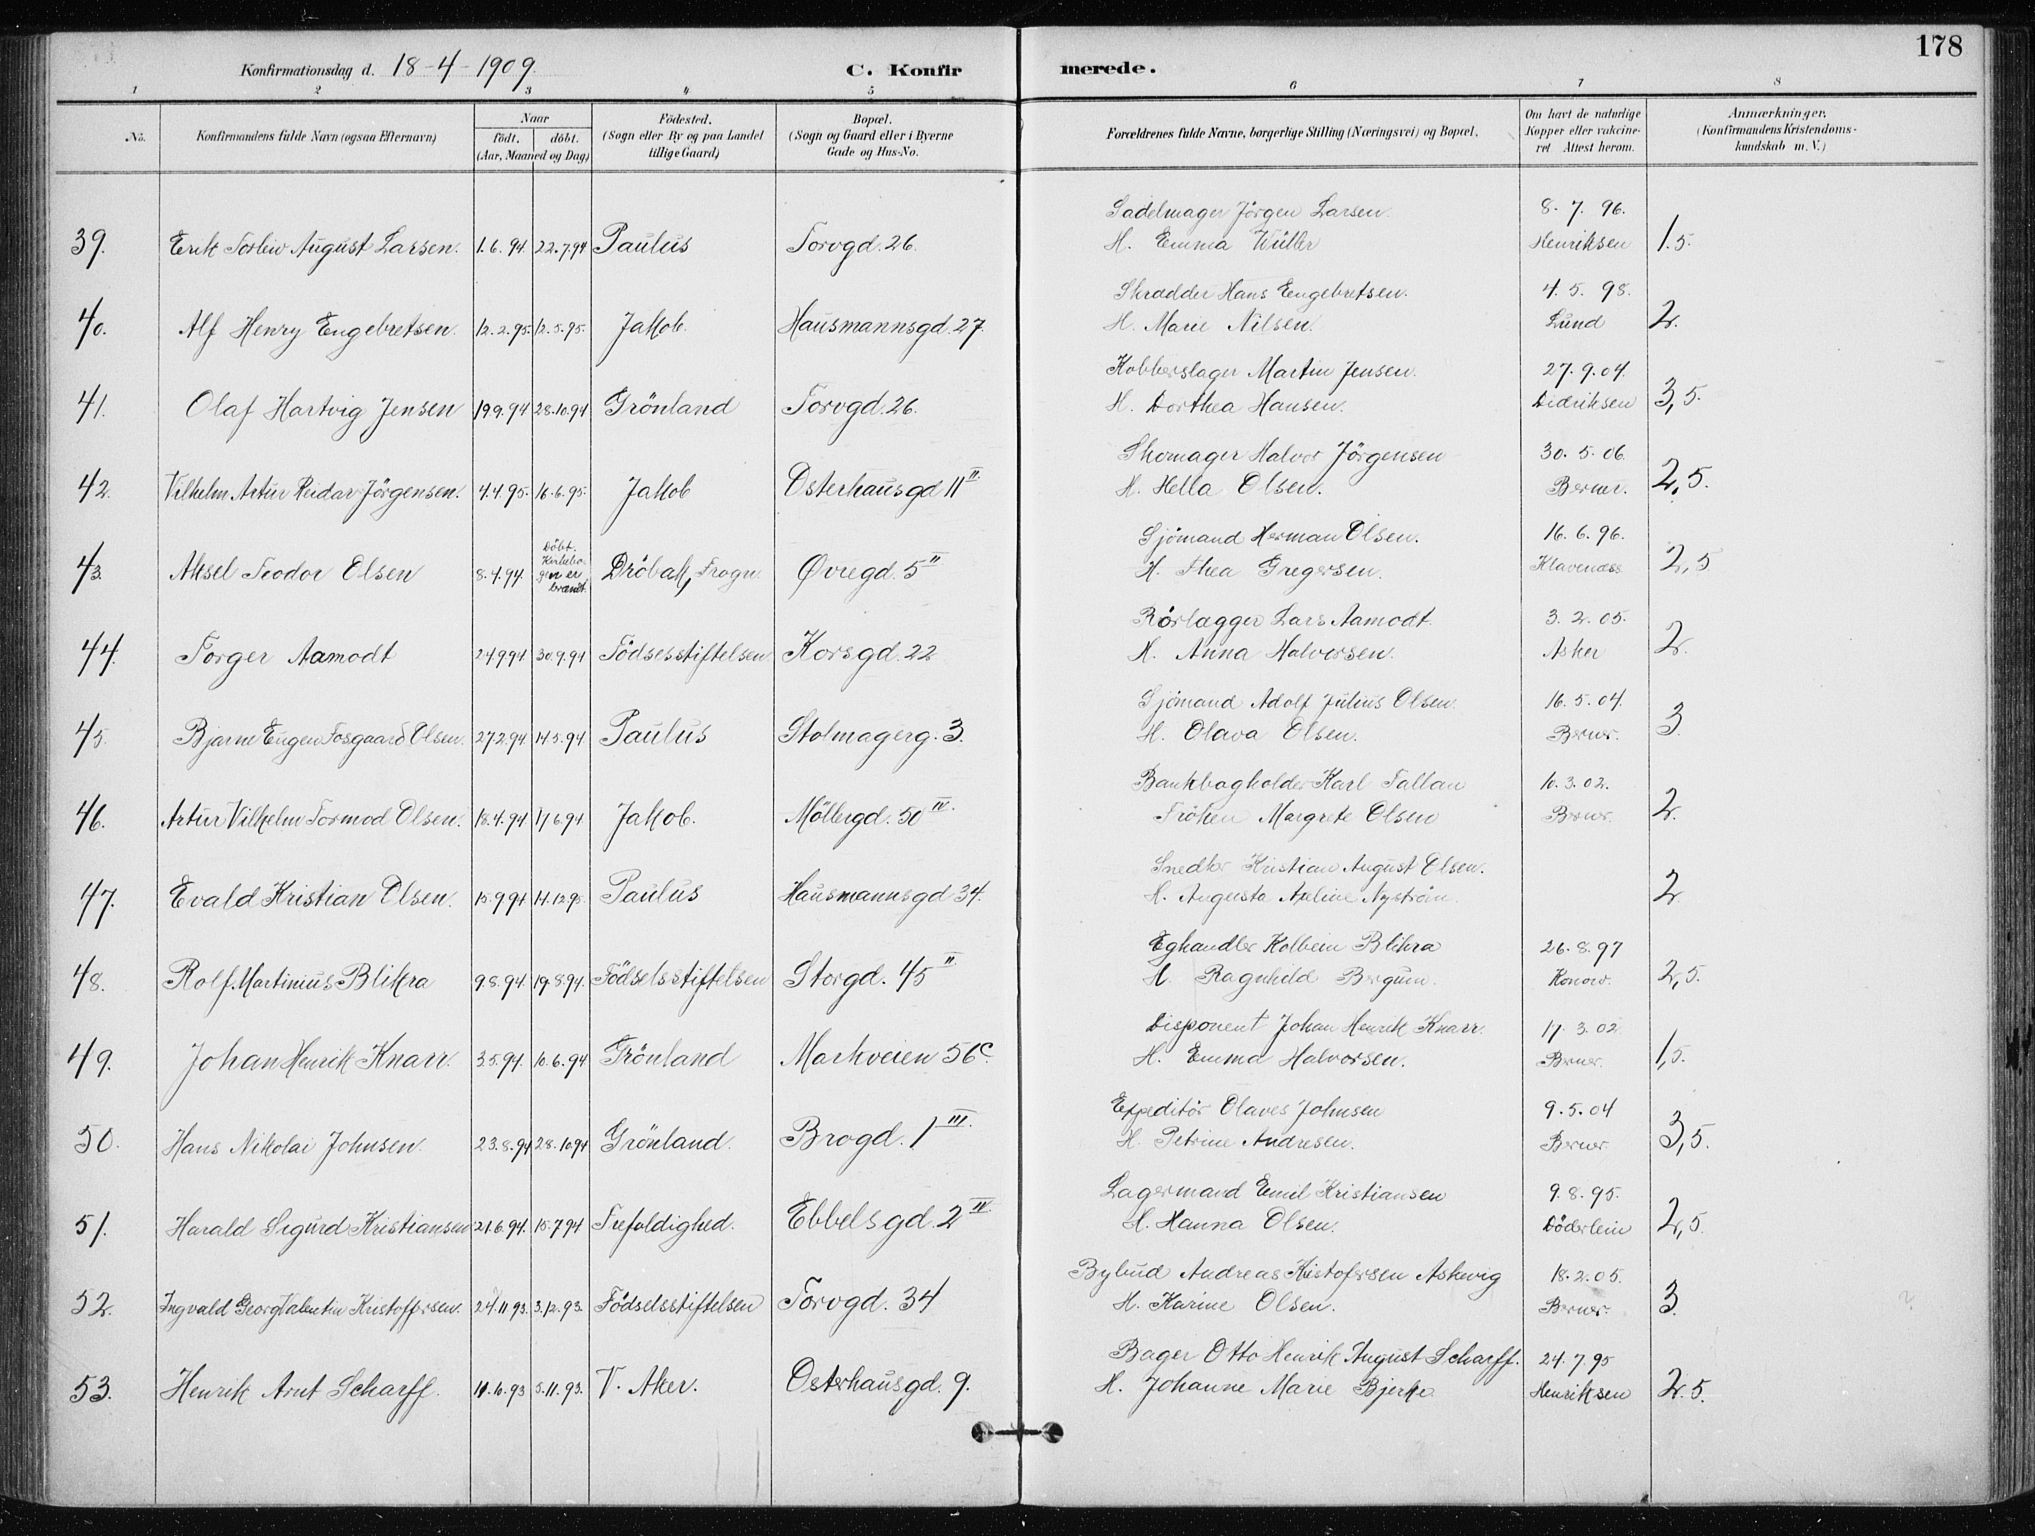 178
Konfirmationsdag d. 18-4-1909.
C. Konfirmerede.
1 2 3 4 5 6 7 8
No. Konfirmandens fulde Navn (ogsaa Efternavn) Naar født. døbt. (Aar, Maaned og Dag) Fødested. (Sogn eller By og paa Landet tillige Gaard) Bopæl. (Sogn og Gaard eller i Byerne Gade og Hus-No. Forældrenes fulde Navne, borgerlige Stilling (Næringsvei) og Bopæl. Om havt de naturlige Kopper eller vakcineret Attest herom. Anmærkninger. (Konfirmandens Kristendomskundskab m. V.)
Sadelmager Jörgen Larsen. 8. 7. 96.
39. Erik Torleiv August Larsen. 1.6.94. 22.7.94 Paulus Torvgd. 26. H. Emma Henriksen 1.5.
Skrædder Hans Engebretsen. 4. 5. 98.
40. Alf Henry Engebretsen. 12.2.95. 12.5.95. Jakob. Hausmannsgd. 27. H. Marie Nilsen. Lund 2.
Kobberslager Martin Jensen. 27.9.04.
41. Olaf Hartvig Jensen 19.9.94 28.10.94 Grönland Torvgd. 26. H. Dorthea Hansen. Didriksen 3,5.
Skomager Halvor Jörgensen 30. 5. 06.
42. Vilhelm Artur Reidar Jörgensen. 4.4.95. 16.6.95. Jakob Osterhausgd 11 II. H. Hella Olsen. Berner. 2,5.
Sjömand Herman Olsen. 16. 6. 96.
43. Aksel Teodor Olsen 8.4.94. Döbt. Kirkebogen er brændt. Dröbak, Frogn. Øvregd. 5 II H. Thea Gregersen. Klavenæss 2,5
Rörlægger Lars Aamodt. 3. 2. 05.
44. Torger Aamodt 24.9.94 30.9.94 Födselsstiftelsen Korsgd. 22 H. Anna Halvorsen. Asker 2.
Sjömand Adolf Julius Olsen. 16. 5. 04.
45. Bjarne Eugen Fosgaard Olsen. 27.2.94 14.5.94 Paulus Stolmagerg. 3. H. Olava Olsen. Berner. 3.
Bankbogholder Karl Tallan 10. 3. 02.
46. Artur Vilhelm Tormod Olsen. 18.4.94 17.6.94 Jakob. Möllergd. 50 IV. Fröken Margrete Olsen Berner. 2.
Snedker Kristian August Olsen.
47. Evald Kristian Olsen. 15.9.94 14.12.95 Paulus Hausmannsgd 34. H. Augusta Axeline Nyström. 2
Eghandler Kolbein Blikra 26. 8. 97
48. Rolf Martinius Blikra 9.8.94. 19.8.94. Födselsstiftelsen Storgd. 45 II. H. Ragnhild Bergum. Konow. 2,5.
Disponent Johan Henrik Knarr. 17. 3. 02.
49. Johan Henrik Knarr. 3.5.94. 10.6.94 Grönland Markveien 56c. H. Emma Halvorsen. Berner. 1,5.
Expeditör Olaves Johnsen 9. 5. 04
50. Hans Nikolai Johnsen. 23.8.94 28.10.94 Grönland. Brogd. 1 III. H. Petrine Andresen. Berner 3,5.
Lagermand Emil Kristiansen 9. 8. 95.
51. Harald Sigurd Kristiansen 21.6.94. 15.7.94 Trefoldighed. Ebbelsgd. 2 IV. H. Hanna Olsen. Döderlein 2,5.
Bybud Andreas Kristofersen Askevig 18. 2. 05.
52. Ingvald Georg Valentin Kristoffersen. 24.11.93. 3.12.93. Födselsstiftelsen Torvgd. 34 H. Karine Olsen. Berner. 3.
Bager Otto Henrik August Scharff. 24. 7. 95
53. Henrik Arnt Scharff. 5.11.93. V. Aker. Osterhausgd. 9. H. Johanne Marie Bjerke Henriksen 2.5.